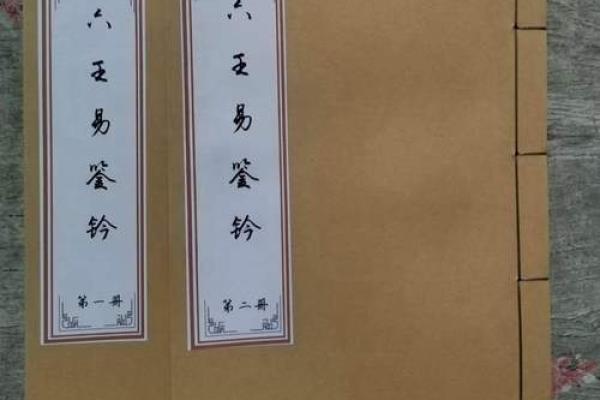 六壬易鉴钤
第一册
六壬易鉴钤
第二册